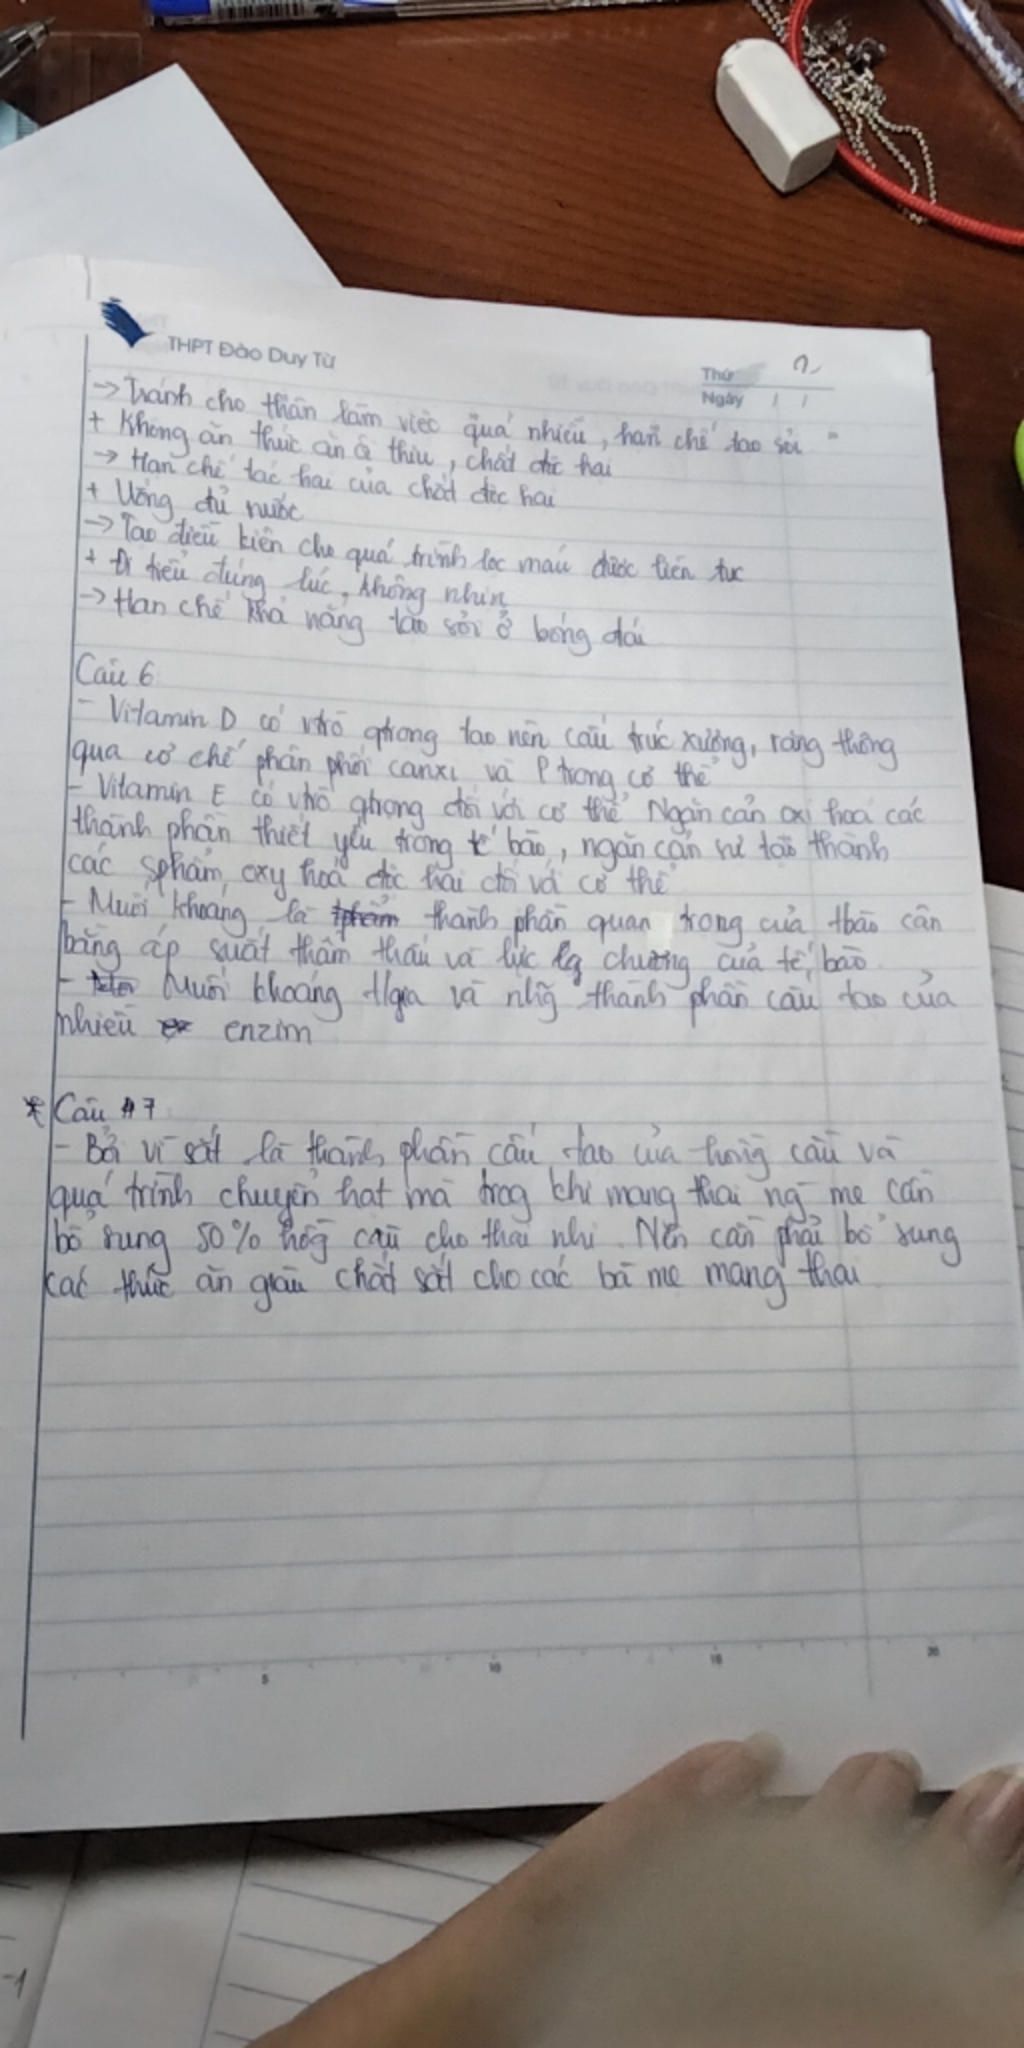 THPT Đào Duy Từ
Thứ 2
Ngày / /
→ Tránh cho thận làm việc quá nhiều, hạn chế tạo sỏi
+ Không ăn thức ăn ôi thiu, chất độc hại
→ Hạn chế tác hại của chất độc hại
+ Uống đủ nước
→ Tạo điều kiện cho quá trình lọc máu được liên tục
+ Đi tiểu đúng lúc, không nhịn
→ Hạn chế khả năng tạo sỏi ở bóng đái
Câu 6
- Vitamin D có vtrò qtrọng tạo nên cấu trúc xương, răng thông
qua cơ chế phân phối canxi và P trong cơ thể
- Vitamin E có vtrò qtrọng đối với cơ thể Ngăn cản oxi hoá các
thành phần thiết yếu trong tế bào, ngăn cản sự tạo thành
các sphẩm oxy hoá độc hại đối với cơ thể
- Muối khoáng là thành phần quan trọng của tbào cân
bằng áp suất thẩm thấu và lực lg chương của tế bào
- Muối khoáng tgia và nhg thành phần cấu tạo của
nhiều enzim
* Câu 7
- Bởi vì sắt là thành phần cấu tạo của hồng cầu và
quá trình chuyển hạt mà trog khi mang thai ng mẹ cần
bổ sung 50% hồg cầu cho thai nhi. Nên cần phải bổ sung
các thức ăn giàu chất sắt cho các bà mẹ mang thai
5 10 15 20
-1